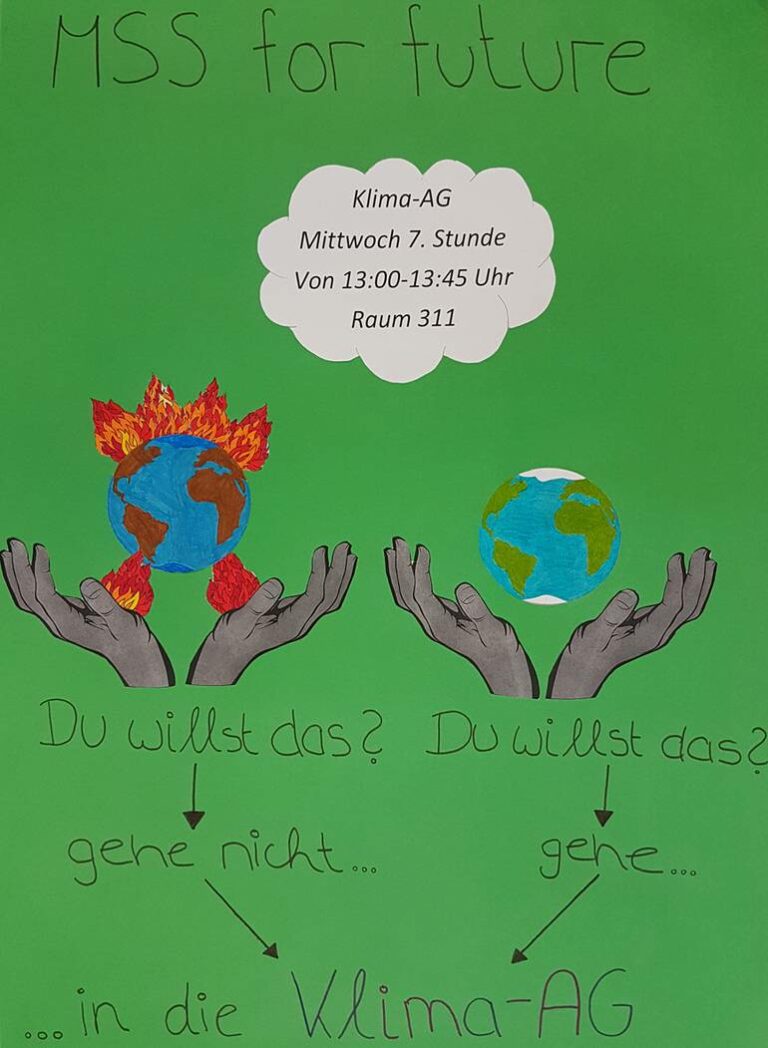 MSS for future
Klima-AG
Mittwoch 7. Stunde
Von 13:00-13:45 Uhr
Raum 311
Du willst das? Du willst das?
gehe nicht... gehe...
...in die Klima-AG